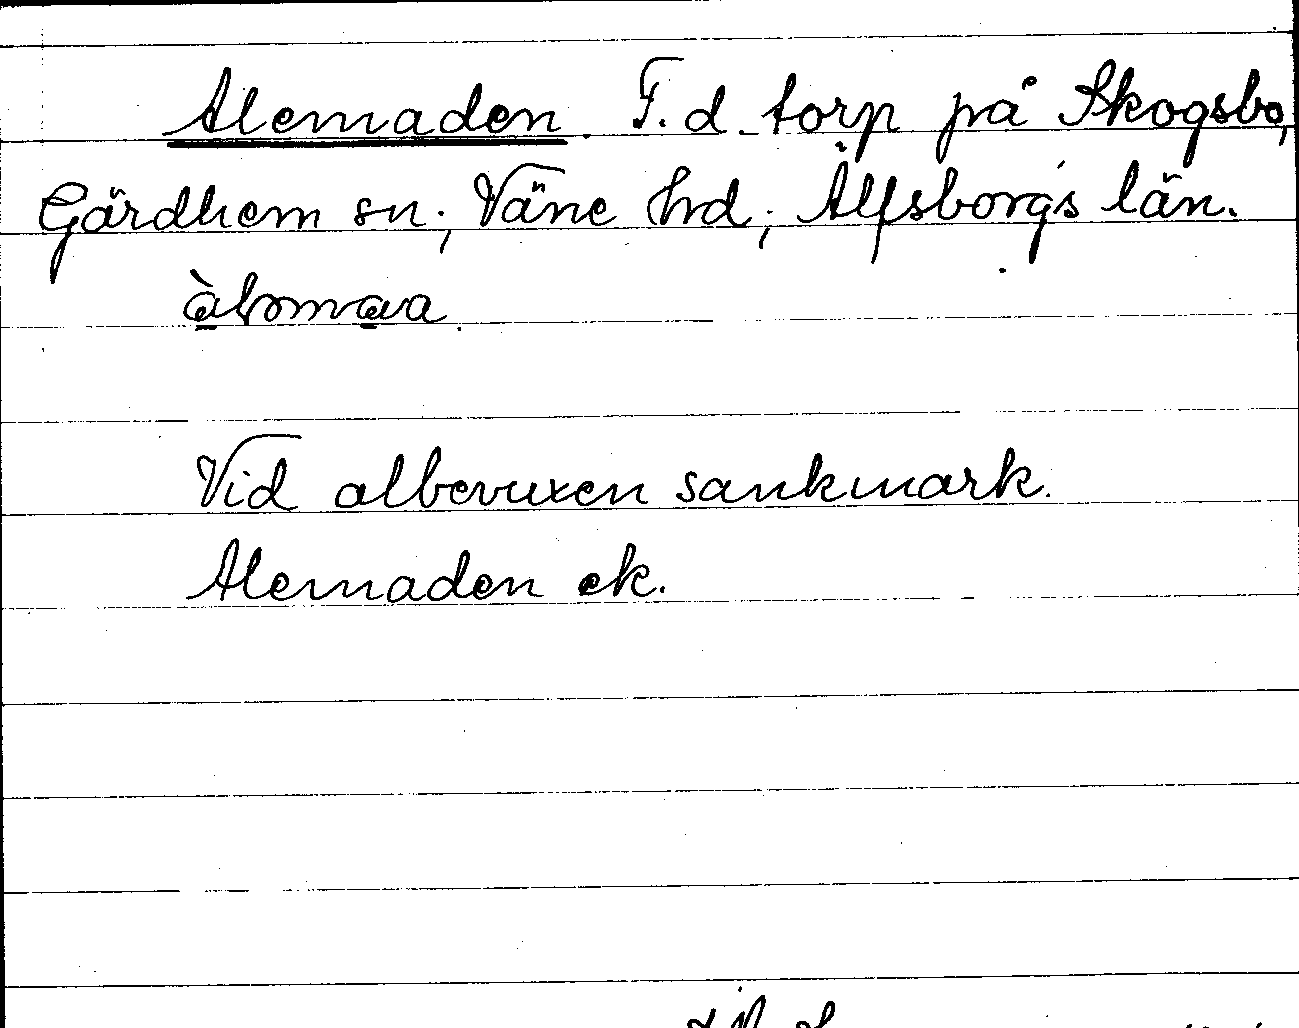 Alemaden. F.d. torp på Skogsbo,
Gärdhem sn; Väne hd; Älfsborgs län.
Vid albevuxen sankmark.
Alemaden ek.